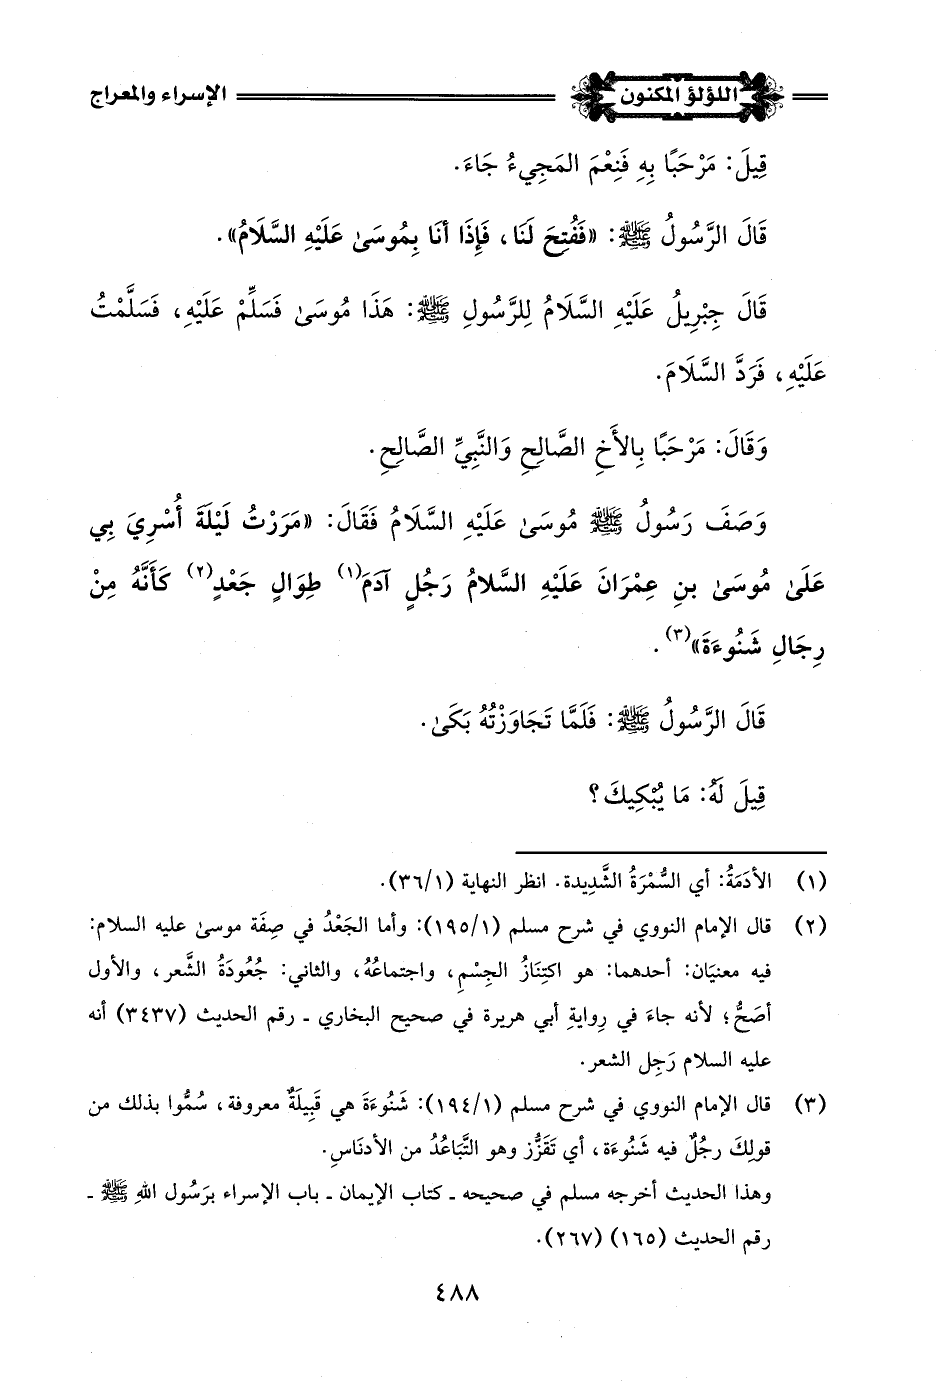 اللؤلؤ المكنون الإسراء والمعراج
قِيلَ: مَرْحَبًا بِهِ فَنِعْمَ المَجِيءُ جَاءَ.
قَالَ الرَّسُولُ ﷺ: «فَفُتِحَ لَنَا، فَإِذَا أَنَا بِمُوسَىٰ عَلَيْهِ السَّلَامُ».
قَالَ جِبْرِيلُ عَلَيْهِ السَّلَامُ لِلرَّسُولِ ﷺ: هَذَا مُوسَىٰ فَسَلِّمْ عَلَيْهِ، فَسَلَّمْتُ
عَلَيْهِ، فَرَدَّ السَّلَامَ.
وَقَالَ: مَرْحَبًا بِالأَخِ الصَّالِحِ وَالنَّبِيِّ الصَّالِحِ.
وَصَفَ رَسُولُ ﷺ مُوسَىٰ عَلَيْهِ السَّلَامُ فَقَالَ: «مَرَرْتُ لَيْلَةَ أُسْرِيَ بِي
عَلَىٰ مُوسَىٰ بنِ عِمْرَانَ عَلَيْهِ السَّلامُ رَجُلٍ آدَمَ(١) طِوَالٍ جَعْدٍ(٢) كَأَنَّهُ مِنْ
رِجَالِ شَنُوءَةَ»(٣).
قَالَ الرَّسُولُ ﷺ: فَلَمَّا تَجَاوَزْتُهُ بَكَىٰ.
قِيلَ لَهُ: مَا يُبْكِيكَ؟
(١) الأدَمَةُ: أي السُّمْرَةُ الشَّدِيدة. انظر النهاية (٣٦/١).
(٢) قال الإمام النووي في شرح مسلم (١٩٥/١): وأما الجَعْدُ في صِفَة موسىٰ عليه السلام:
فيه معنيَان: أحدهما: هو اكتِنَازُ الجِسْمِ، واجتماعُهُ، والثاني: جُعُودَةُ الشَّعر، والأول
أصَحُّ؛ لأنه جاءَ في رِوايةِ أبي هريرة في صحيح البخاري ـ رقم الحديث (٣٤٣٧) أنه
عليه السلام رَجِل الشعر.
(٣) قال الإمام النووي في شرح مسلم (١٩٤/١): شَنُوءَةَ هي قَبِيلَةٌ معروفة، سُمُّوا بذلك من
قولِكَ رجُلٌ فيه شَنُوءَة، أي تَقَزُّز وهو التَّبَاعُدُ من الأدنَاسِ.
وهذا الحديث أخرجه مسلم في صحيحه ـ كتاب الإيمان ـ باب الإسراء برَسُول اللهِ ﷺ ـ
رقم الحديث (١٦٥) (٢٦٧).
٤٨٨